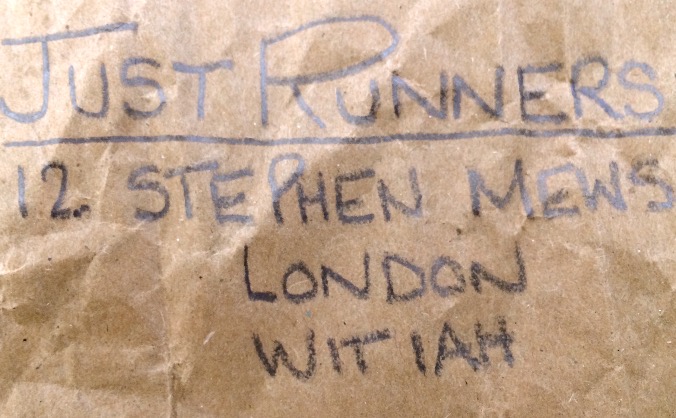 JUST RUNNERS
12. STEPHEN MEWS
LONDON
W1T 1AH